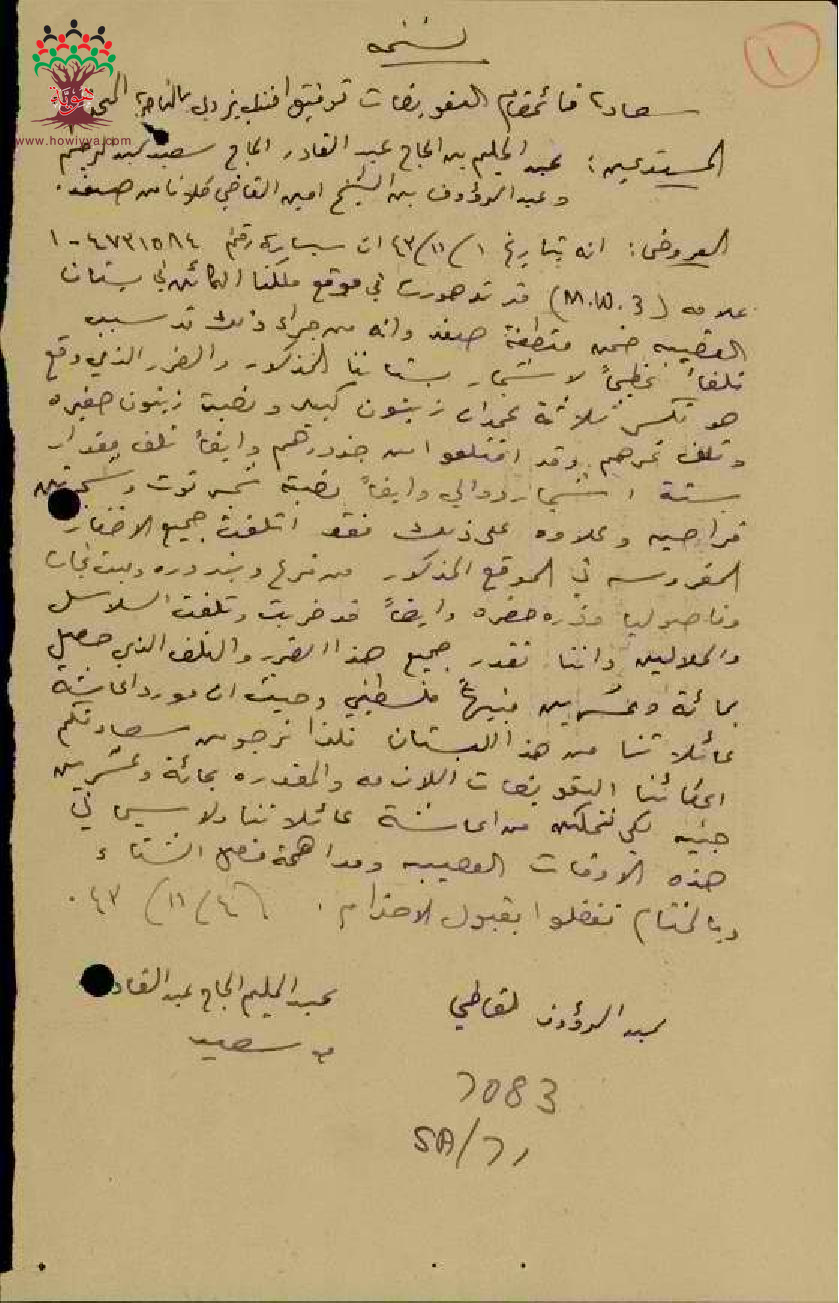 نسخه
١
هويتنا
www.howiyya.com
سعادة قائمقام التعويضات توفيق افندي بالناصرة
المستدعين: عبد الحليم بن الحاج عبد القادر الحاج سعيد
وعبد الرؤوف بن الشيخ امين القاضي كلانا من صفد.
المعروض: انه بتاريخ ١/١١/٤٣ ان سيارة رقم ٤٧٣١٥٨٤ - ١
علامه (M.W.3) قد تدهورت في موقع ملكنا الكائن في بستان
القصيبه ضمن منطقة صفد وانه من جراء ذلك قد سبب
تلفاً عظيماً لاشجار بستاننا المذكور والضرر الذي وقع
هو تكسر ثلاثة عمدان زيتون كبير ونصبت زيتون صغيره
وتلف ثمرهم وقد اقتلعوا من جذورهم وايضاً تلف مقدار
ستة اشجار دوالي وايضاً نصبة شجر توت وشجرتين
قراصيه وعلاوه على ذلك فقد اتلفت جميع الاخضار
المغروسه في الموقع المذكور من قرع وبندوره وبيتنجان
وفاصوليا وذره خضره وايضاً قد خربت وتلفت السلاسل
والملاليين واننا نقدر جميع هذا الضرر والتلف الذي حصل
بمائة وعشرين جنيهاً فلسطيني وحيث ان مورد اعاشة
عائلاتنا من هذا البستان فلذا نرجو من سعادتكم
اعطائنا التعويضات اللازمه والمقدره بمائة وعشرين
جنيه لكي نتمكن من اعاشة عائلاتنا ولا سيما في
هذه الاوقات العصيبه ومداهمة فصل الشتاء
وبالختام تفضلوا بقبول الاحترام. ٤/١١/٤٣.
عبد الرؤوف القاضي
عبد الحليم الحاج عبد القادر
سعيد
7083
SA/71